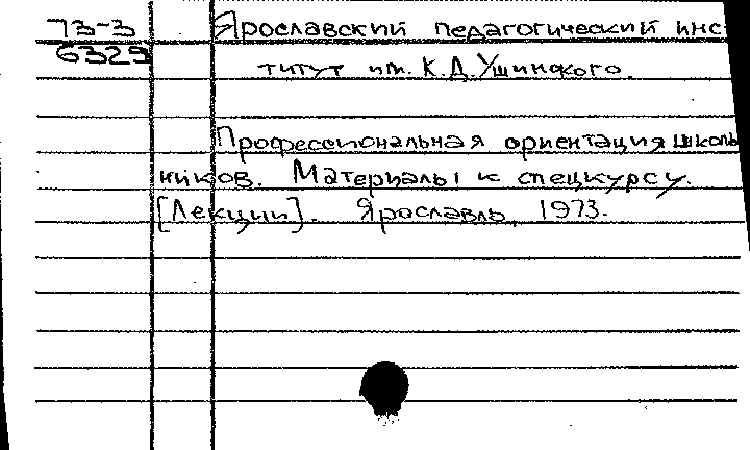 73-3 Ярославский педагогический инс-
6329
титут им. К.Д.Ушинского.
Профессиональная ориентация школь
ников. Материалы к спецкурсу.
[Лекции]. Ярославль, 1973.